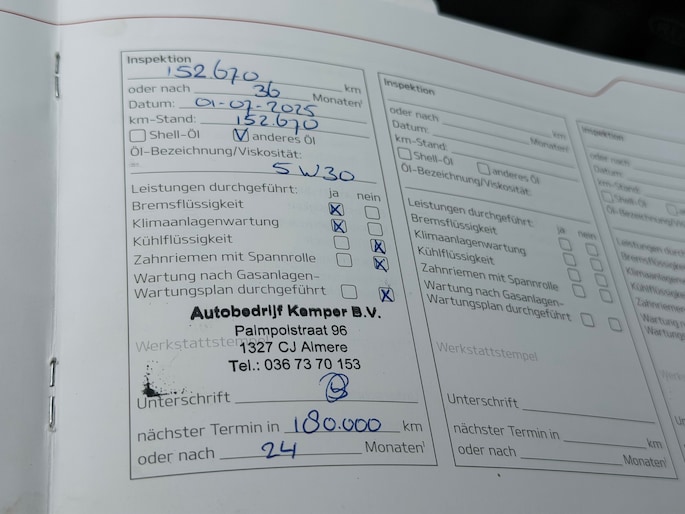 Inspektion
152.670 km
oder nach 36 Monaten¹
Datum: 01-07-2025
km-Stand: 152.670
Shell-Öl anderes Öl
Öl-Bezeichnung/Viskosität:
5W30
Leistungen durchgeführt: ja nein
Bremsflüssigkeit
Klimaanlagenwartung
Kühlflüssigkeit
Zahnriemen mit Spannrolle
Wartung nach Gasanlagen-
Wartungsplan durchgeführt
Autobedrijf Kamper B.V.
Palmpolstraat 96
Werkstattstempel
1327 CJ Almere
Tel.: 036 73 70 153
Unterschrift
nächster Termin in 180.000 km
oder nach 24 Monaten¹
Inspektion
km
oder nach Monaten¹
Datum:
km-Stand:
Shell-Öl anderes Öl
Öl-Bezeichnung/Viskosität:
Leistungen durchgeführt: ja nein
Bremsflüssigkeit
Klimaanlagenwartung
Kühlflüssigkeit
Zahnriemen mit Spannrolle
Wartung nach Gasanlagen-
Wartungsplan durchgeführt
Werkstattstempel
Unterschrift
nächster Termin in km
oder nach Monaten¹
Inspektion
oder nach
Datum:
km-Stand:
Shell-Öl
Öl-Bezeichnung
Leistungen
Bremsflüssigkeit
Klimaanlagen
Kühlflüssigkeit
Zahnriemen
Wartung
Wartung